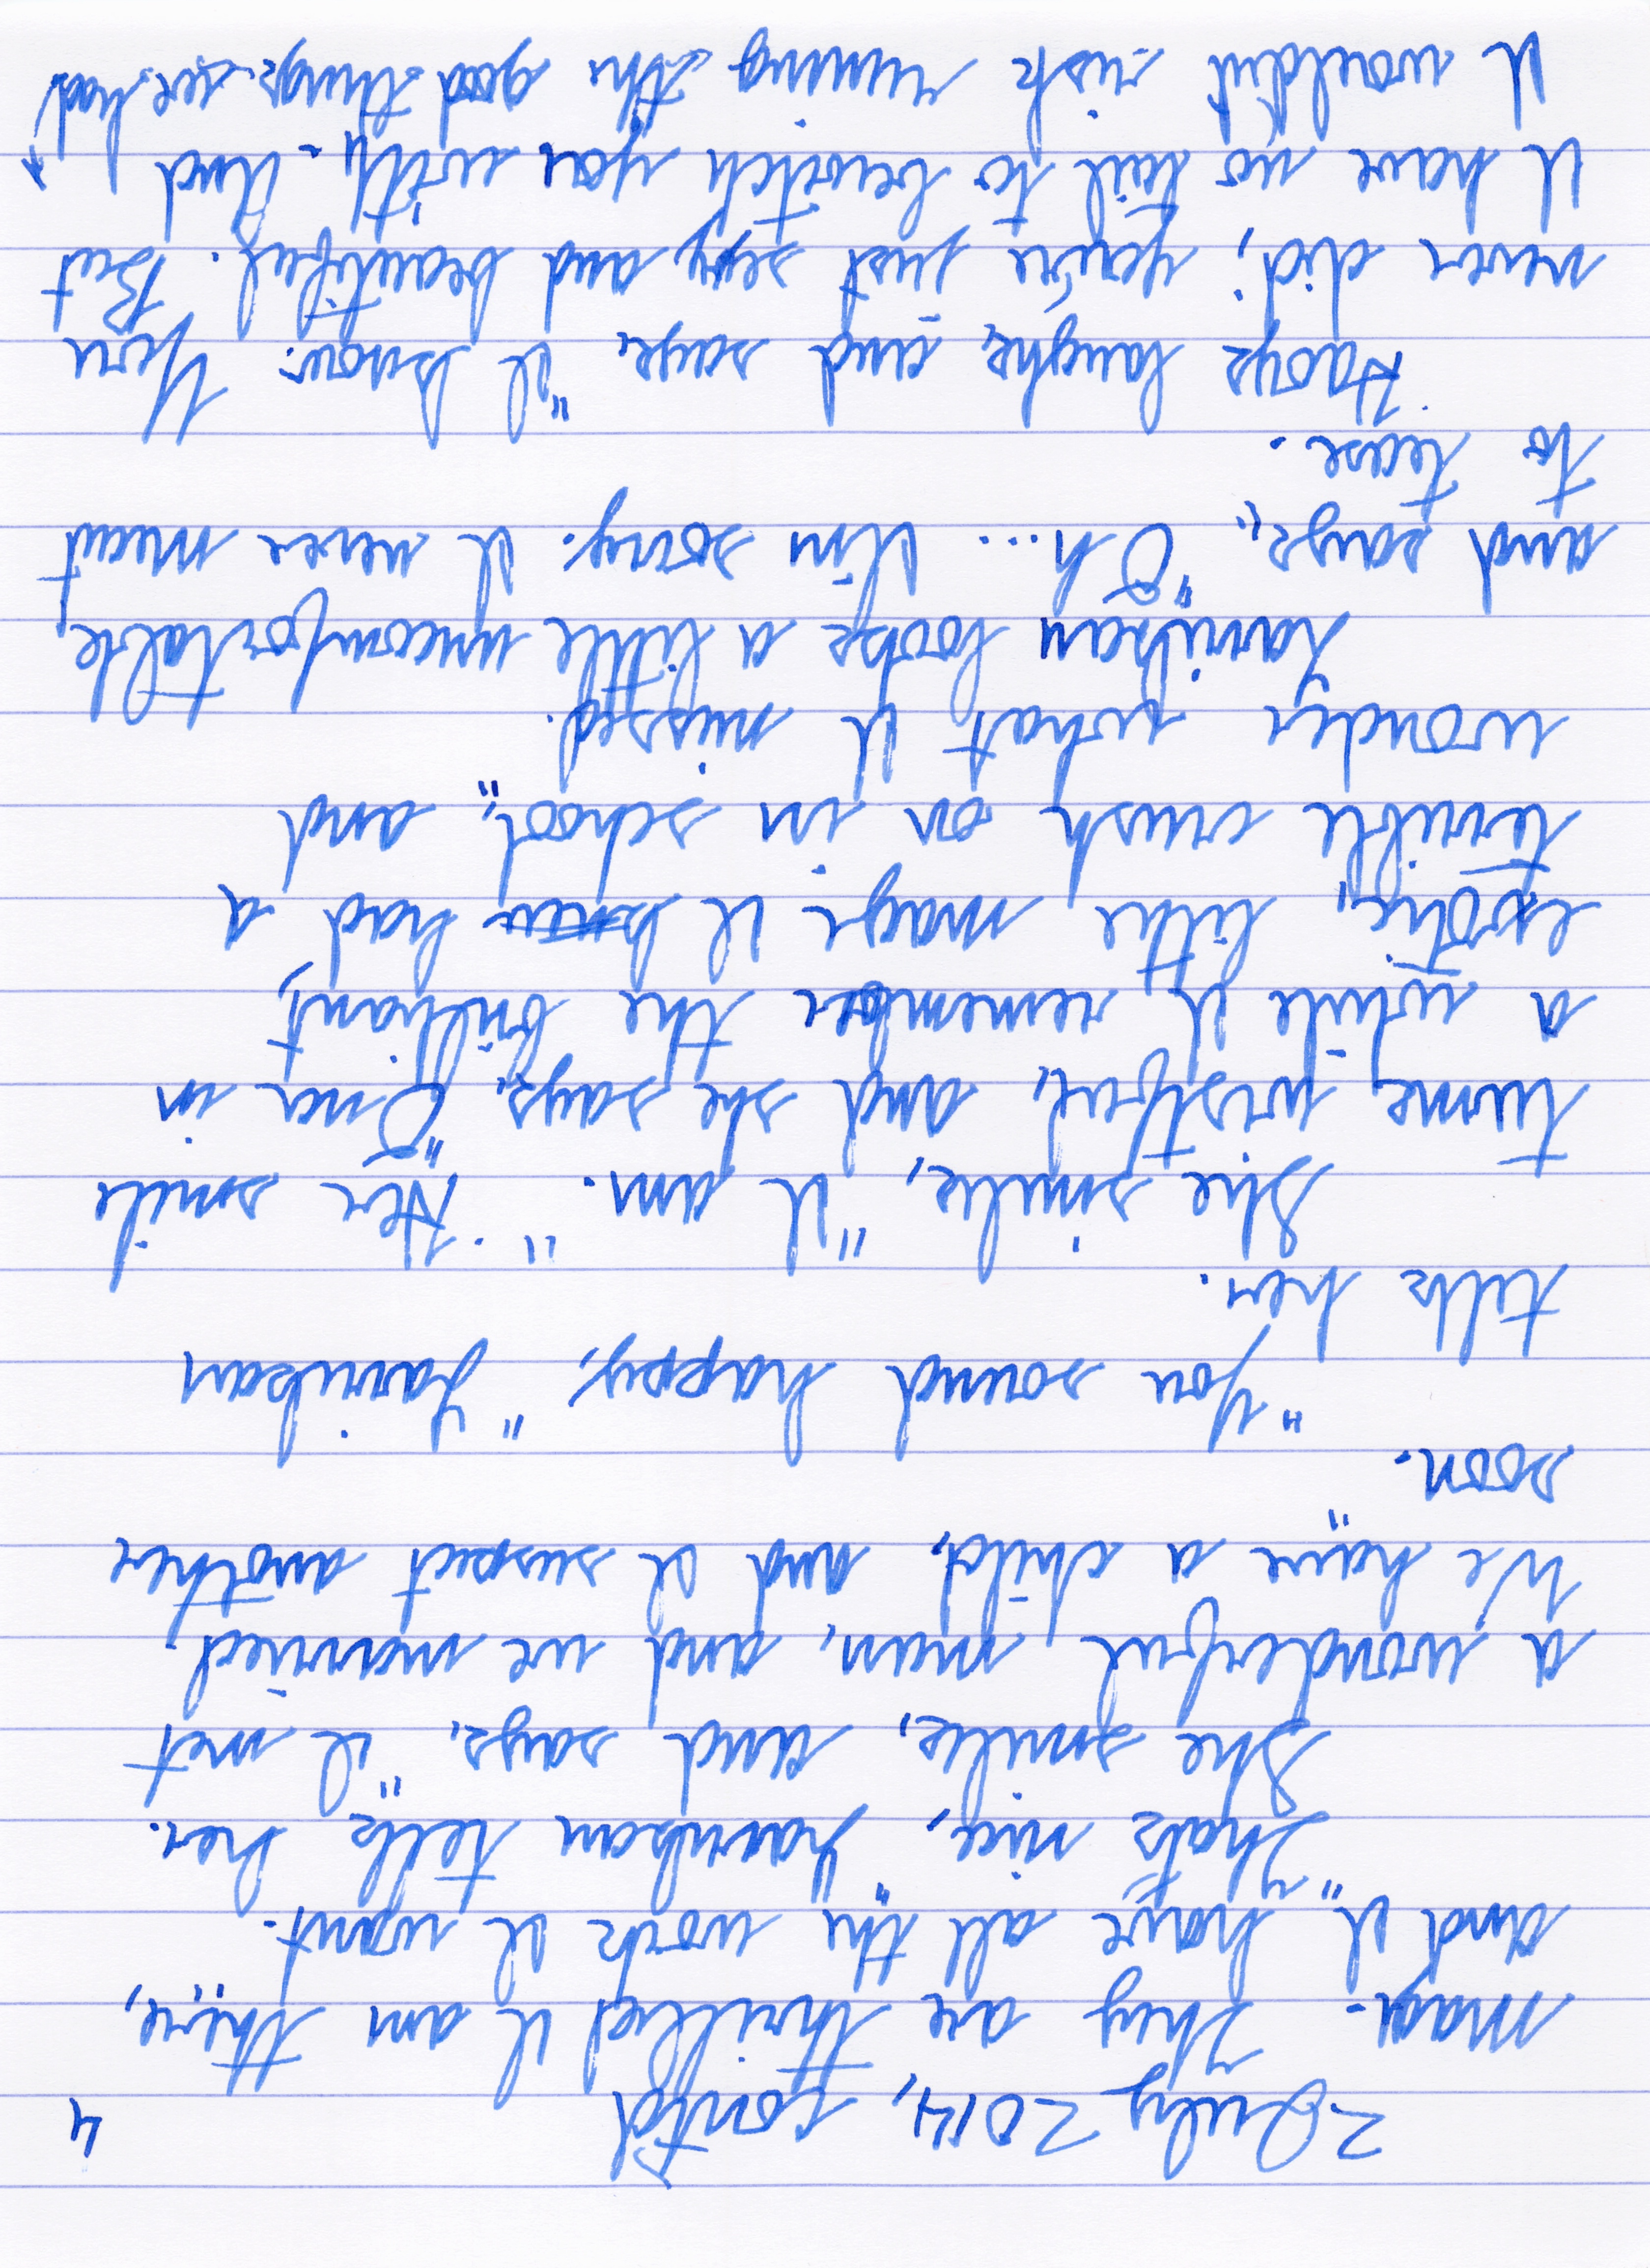 2 July 2014, cont'd 4
mage. They are thrilled I am there,
and I have all the work I want."
"That's nice," Yarrikan tells her.
She smiles, and says, "I met
a wonderful man, and we married.
We have a child, and I suspect another
soon."
"You sound happy," Yarrikan
tells her.
She smiles, "I am." Her smile
turns wistful, and she says, "Once in
a while I remember the brilliant,
exotic, little mage I knew had a
terrible crush on in school," and
wonder what I missed."
Yarrikan looks a little uncomfortable,
and says, "Oh... I'm sorry. I never meant
to tease."
laughs, and says, "I know. You
never did; you're just sexy and beautiful. But
I have no tail to bewitch you with. And
I wouldn't risk ruining the good things we had